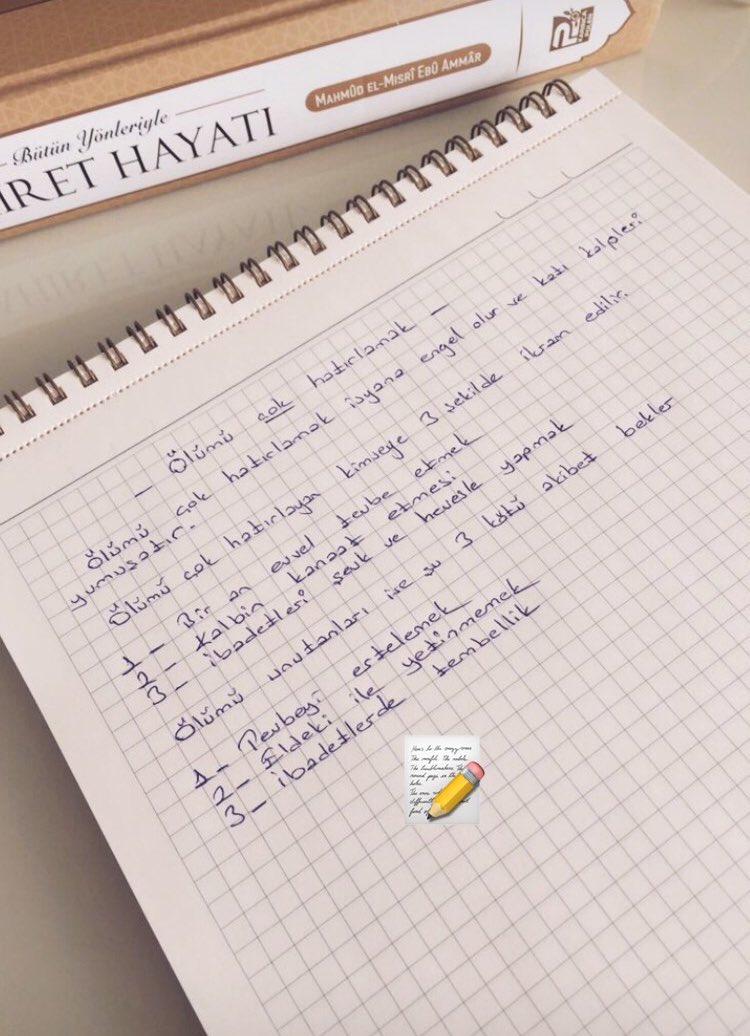 Bütün Yönleriyle
İRET HAYATI
MAHMÛD EL-MISRÎ EBÛ AMMÂR
- Ölümü çok hatırlamak -
Ölümü çok hatırlamak isyana engel olur ve katı kalpleri
yumuşatır.
Ölümü çok hatırlayan kimseye 3 şekilde ikram edilir.
1- Bir an evvel tevbe etmek
2- Kalbin kanaat etmesi
3- ibadetleri şevk ve hevesle yapmak
Ölümü unutanları ise şu 3 kötü akibet bekler
1- Tevbeyi ertelemek
2- Eldeki ile yetinmemek
3- ibadetlerde tembellik